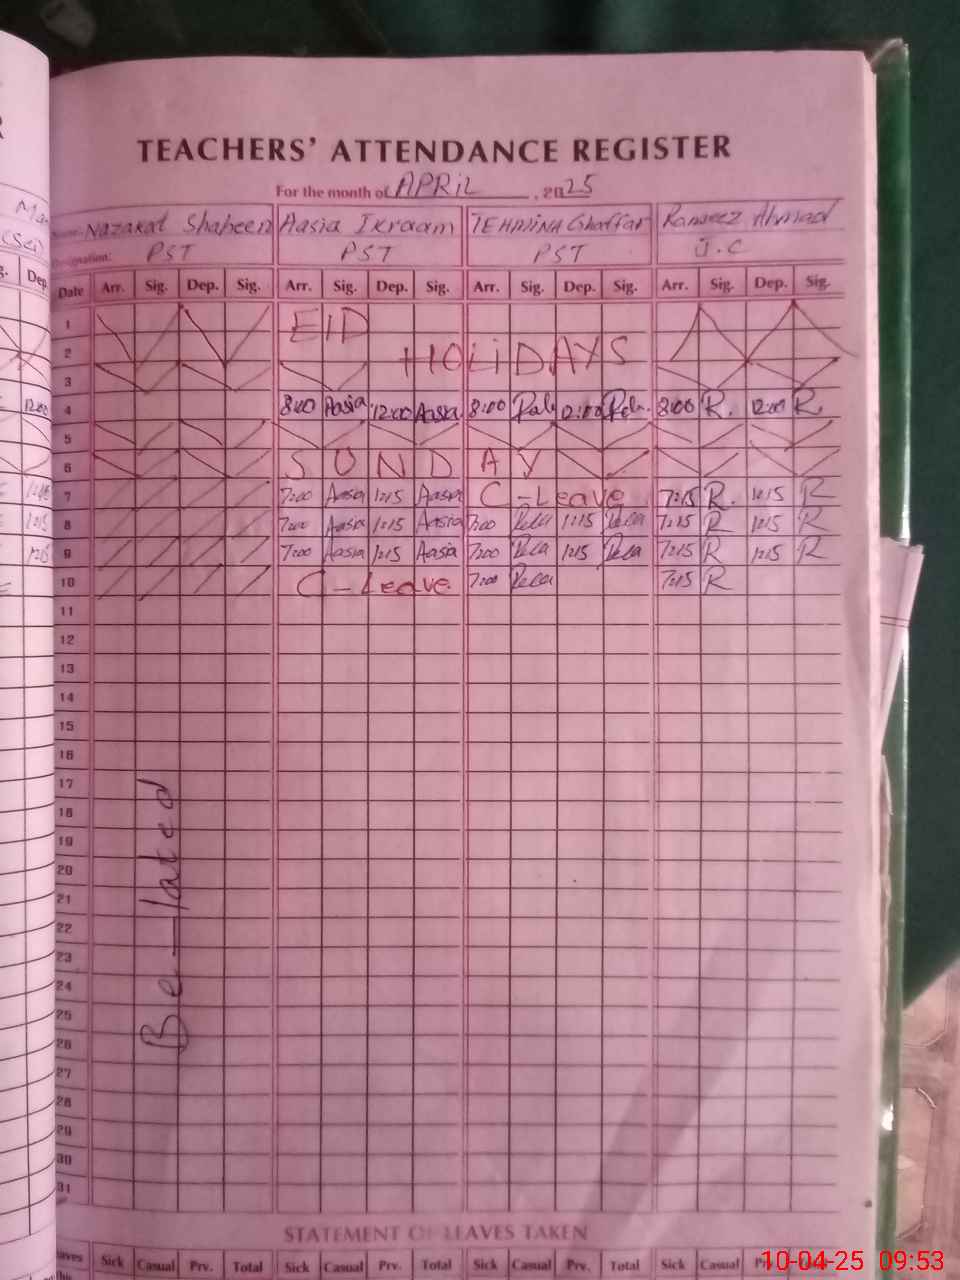 TEACHERS' ATTENDANCE REGISTER
For the month of APRIL, 2025
Nazakat Shaheen Aasia Ikraam TEHMINA Ghaffar Rameez Ahmad
Designation: PST PST PST J.C
Date Arr. Sig. Dep. Sig. Arr. Sig. Dep. Sig. Arr. Sig. Dep. Sig. Arr. Sig. Dep. Sig.
1 EID
2 HOLIDAYS
3
12:00 4 8:00 Aasia 12:00 Aasia 8:00 12:00 8:00 R. 12:00 R.
5
6 SUNDAY
7 7:00 Aasia 1:15 Aasia C-Leave 7:15 R. 1:15 R
1:15 8 7:00 Aasia 1:15 Aasia 7:00 1:15 7:15 R 1:15 R
1:15 9 7:00 Aasia 1:15 Aasia 7:00 1:15 7:15 R 1:15 R
10 C-Leave 7:00 7:15 R
11
12
13
14
15
16
17
18
19
20
21
22
23
24
25
26
27
28
29
30
31
Be-lated
STATEMENT OF LEAVES TAKEN
Sick Casual Prv. Total Sick Casual Prv. Total Sick Casual Prv. Total Sick Casual
10-04-25 09:53